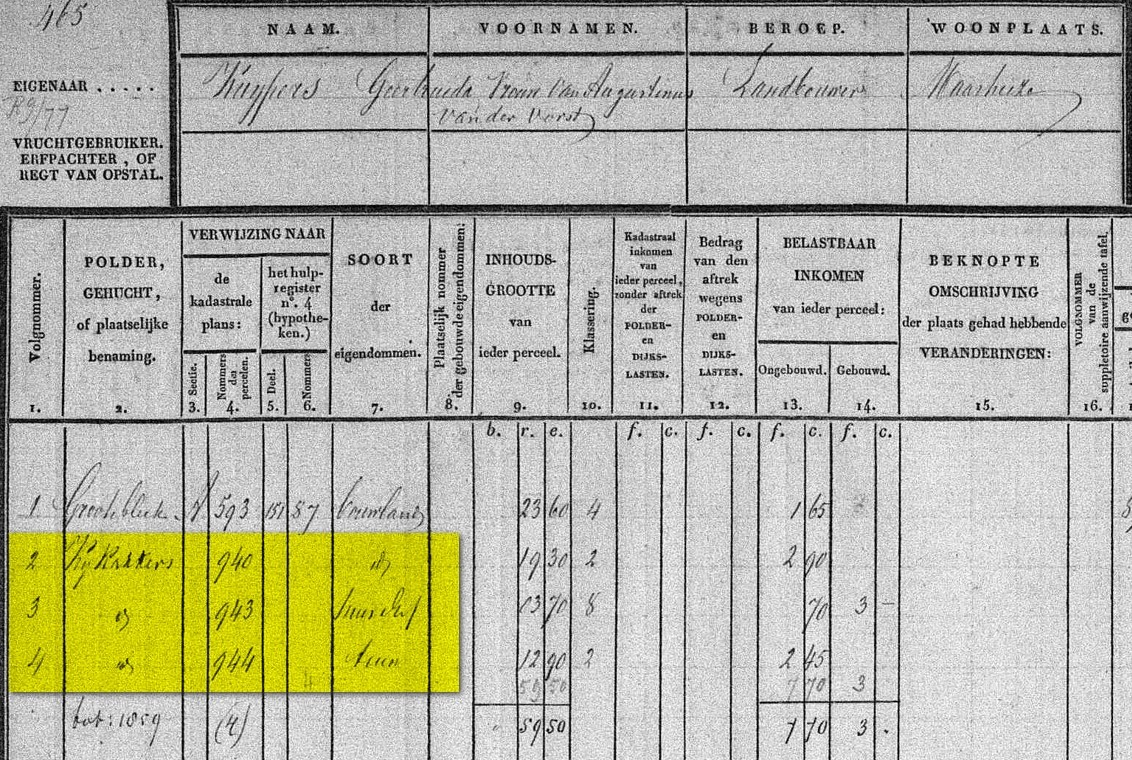 465
NAAM. VOORNAMEN. BEROEP. WOONPLAATS.
EIGENAAR . . . . .
Kuypers Geertruida Vrouw van Augustinus Landbouwer Maarheeze
van der Vorst
VRUCHTGEBRUIKER.
ERFPACHTER, OF
REGT VAN OPSTAL.
Volgnommer.
POLDER,
GEHUCHT,
of plaatselijke
benaming.
VERWIJZING NAAR
de
kadastrale
plans:
het hulp-
register
n°. 4
(hypothe-
ken.)
Sectie.
Nommers
der
percelen.
Deel.
Nommers
SOORT
der
eigendommen.
Plaatselijk nommer
der gebouwde eigendommen.
INHOUDS-
GROOTTE
van
ieder perceel.
Klassering.
Kadastraal
inkomen
van
ieder perceel,
zonder aftrek
der
POLDER-
en
DIJKS-
LASTEN.
Bedrag
van den
aftrek
wegens
POLDER-
en
DIJKS-
LASTEN.
BELASTBAAR
INKOMEN
van ieder perceel:
Ongebouwd. Gebouwd.
BEKNOPTE
OMSCHRIJVING
der plaats gehad hebbende
VERANDERINGEN:
VOLGNOMMER
van de
suppletoire aanwijzende tafel.
1. 2. 3. 4. 5. 6. 7. 8. 9. 10. 11. 12. 13. 14. 15. 16.
b. r. e. f. c. f. c. f. c. f. c.
1 593 151 87 bouwland 23 60 4 1 65
2 940 id 19 30 2 2 90
3 id 943 03 70 8 70 3 —
4 id 944 tuin 12 90 2 2 45
4 59 50 7 70 3
tot: 1859 (4) 59 50 7 70 3 .